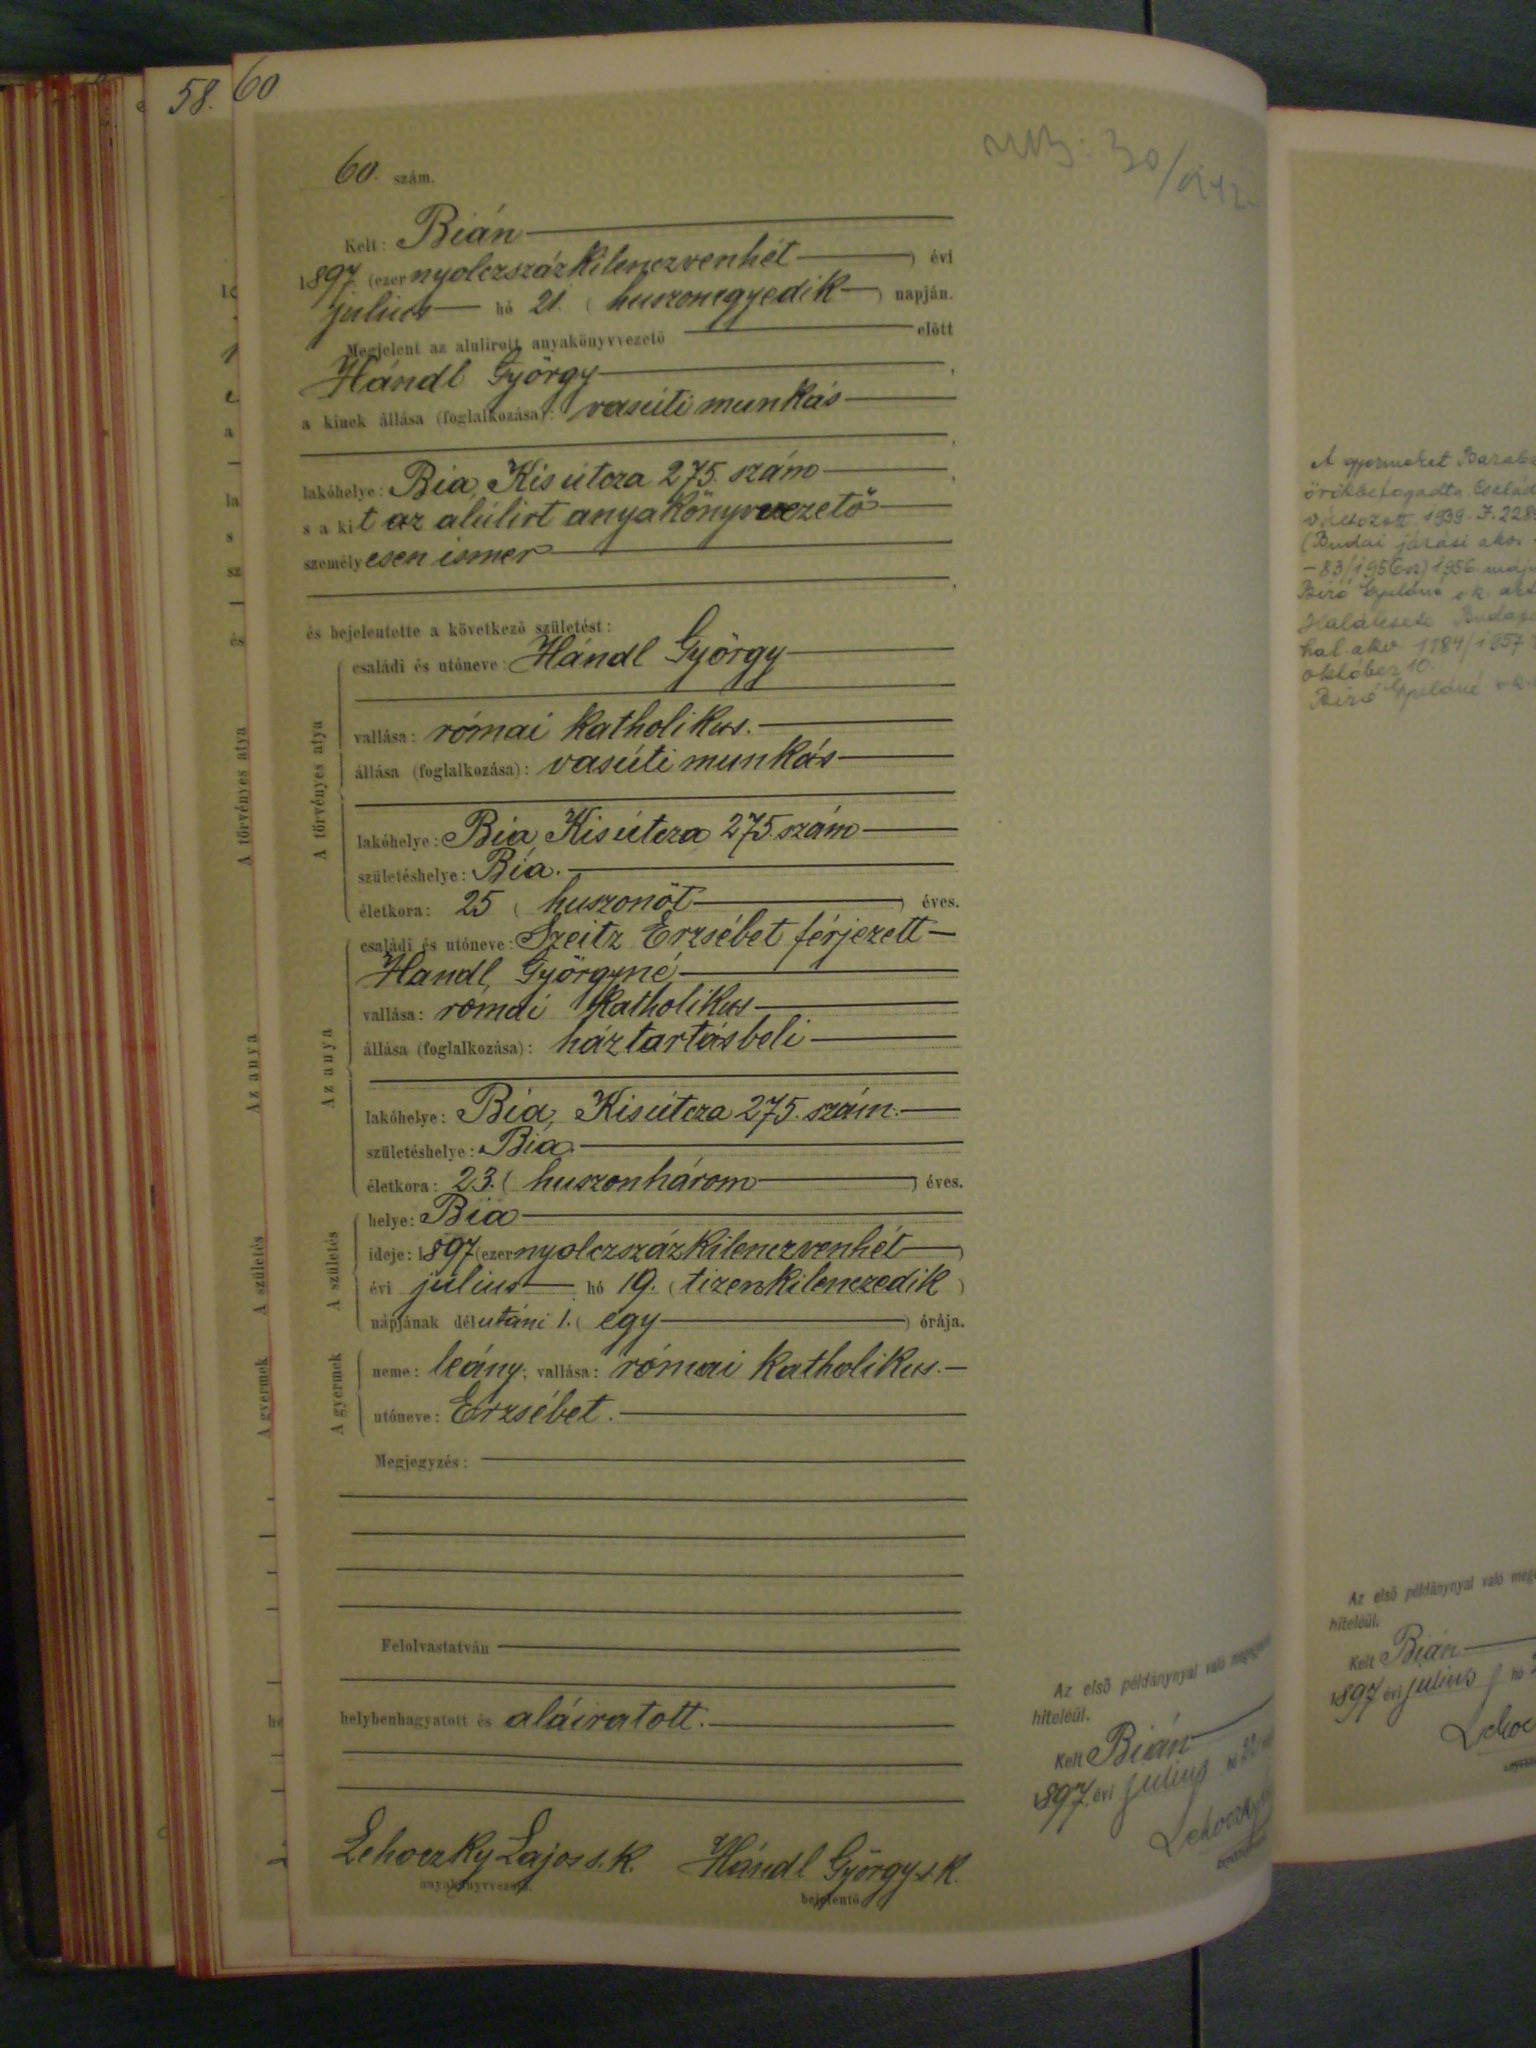 58.
60
60. szám.
Kelt: Bián
1897. (ezer nyolczszázkilenczvenhét) évi
julius hó 21. (huszonegyedik) napján.
Megjelent az alulirott anyakönyvvezető előtt
Hándl György,
a kinek állása (foglalkozása): vasúti munkás
,
lakóhelye: Bia, Kisútcza 275. szám,
s a kit az alúlirt anyakönyvvezető
személyesen ismer
,
és bejelentette a következő születést:
A törvényes atya
családi és utóneve: Hándl György
vallása: római katholikus.
állása (foglalkozása): vasúti munkás
lakóhelye: Bia, Kisútcza 275. szám
születéshelye: Bia.
életkora: 25 (huszonöt) éves.
Az anya
családi és utóneve: Szeitz Erzsébet férjezett
Handl Györgyné
vallása: római katholikus
állása (foglalkozása): háztartásbeli
lakóhelye: Bia, Kisútcza 275. szám.
születéshelye: Bia.
életkora: 23. (huszonhárom) éves.
A születés
helye: Bia
ideje: 1897 (ezer nyolczszázkilenczvenhét)
évi julius hó 19. (tizenkilenczedik)
napjának délutáni 1. (egy) órája.
A gyermek
neme: leány; vallása: római katholikus.
utóneve: Erzsébet.
Megjegyzés:
Felolvastatván
helybenhagyatott és aláiratott.
Lehoczky Lajos s. k. Hándl György s. k.
anyakönyvvezető. bejelentő
Az első példánynyal való
hiteléül.
Kelt Bián
1897. évi julius hó
Lehoczky
A törvényes atya
Az anya
A születés
A gyermek
A gyermeket
örökbefogadta
változott 1939.
(Budai járási akv.
-83/1956 sz) 1956
Biró Gyuláné
Budape
hal. akv. 1184/1957
október 10.
Biró Gyuláné
Az első példánynyal való
hiteléül.
Kelt Bián
1897 évi julius hó
Lehoc